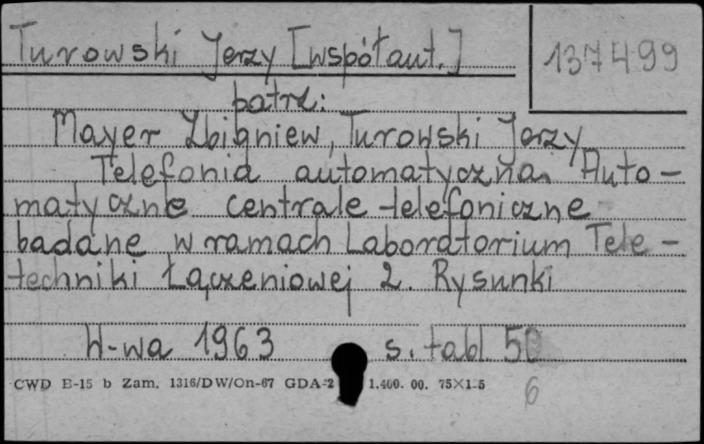 Turowski Jerzy [współaut.]
137499
patrz:
Mayer Zbigniew, Turowski Jerzy
Telefonia automatyczna. Auto-
matyczne centrale telefoniczne
badane w ramach Laboratorium Tele-
techniki Łączeniowej 2. Rysunki
W-wa 1963 s. tabl. 50
CWD E-15 b Zam. 1316/DW/On-67 GDA-2 1.400. 00. 75×1-5
6